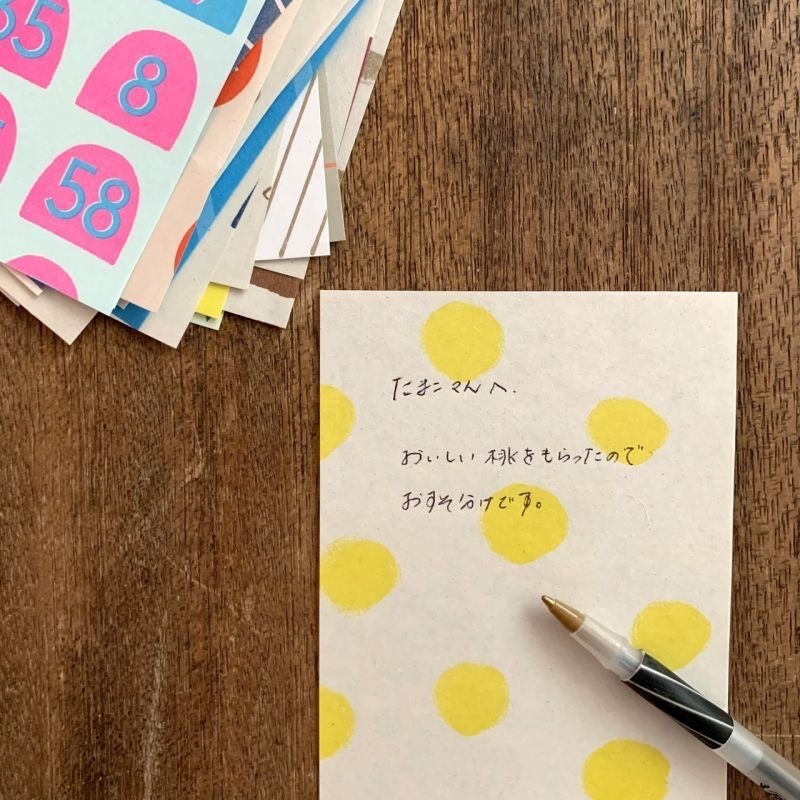 35
8
58
たまこさんへ.
おいしい桃をもらったので
おすそ分けです。